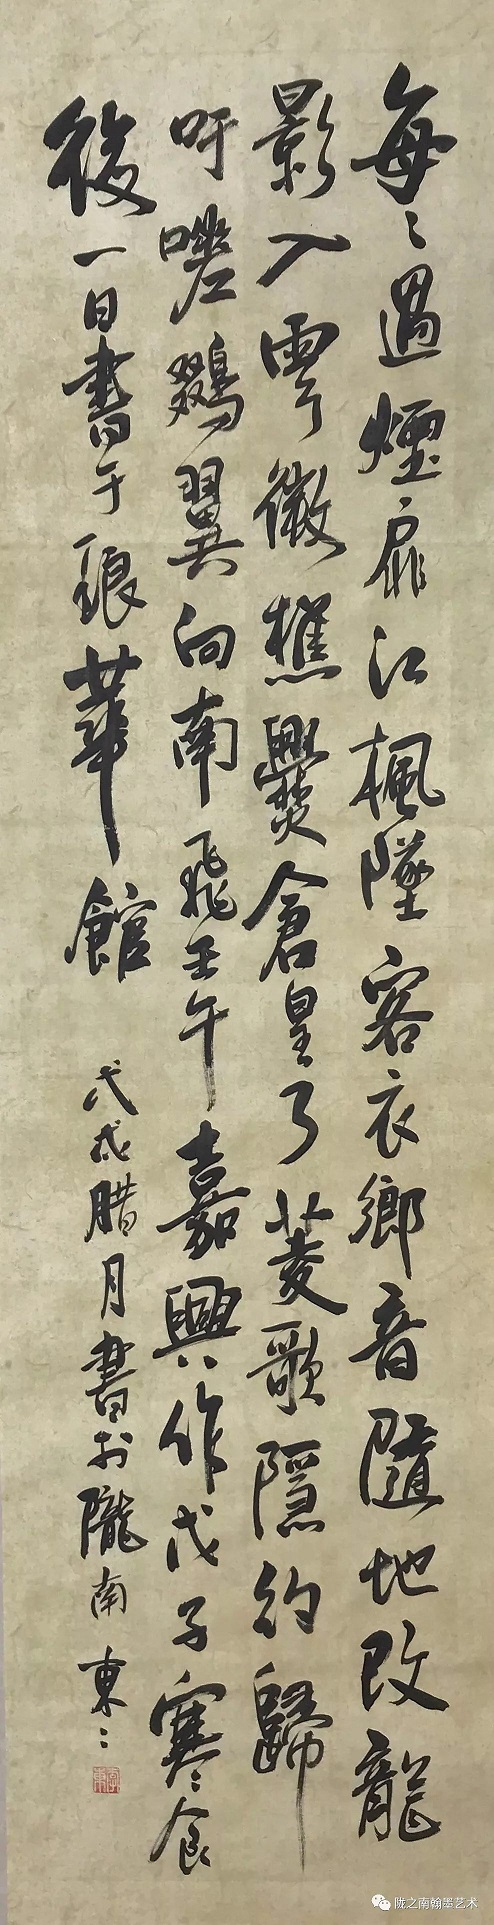 每〻過煙扉江楓墜客衣鄉音隨地改龍
影入雲微樵爨倉皇了菱歌隱約歸
吁嗟翼向南飛壬午嘉興作戊子寒食
後一日書于琅華館
戊戌腊月書於隴南東〻
陇之南翰墨艺术